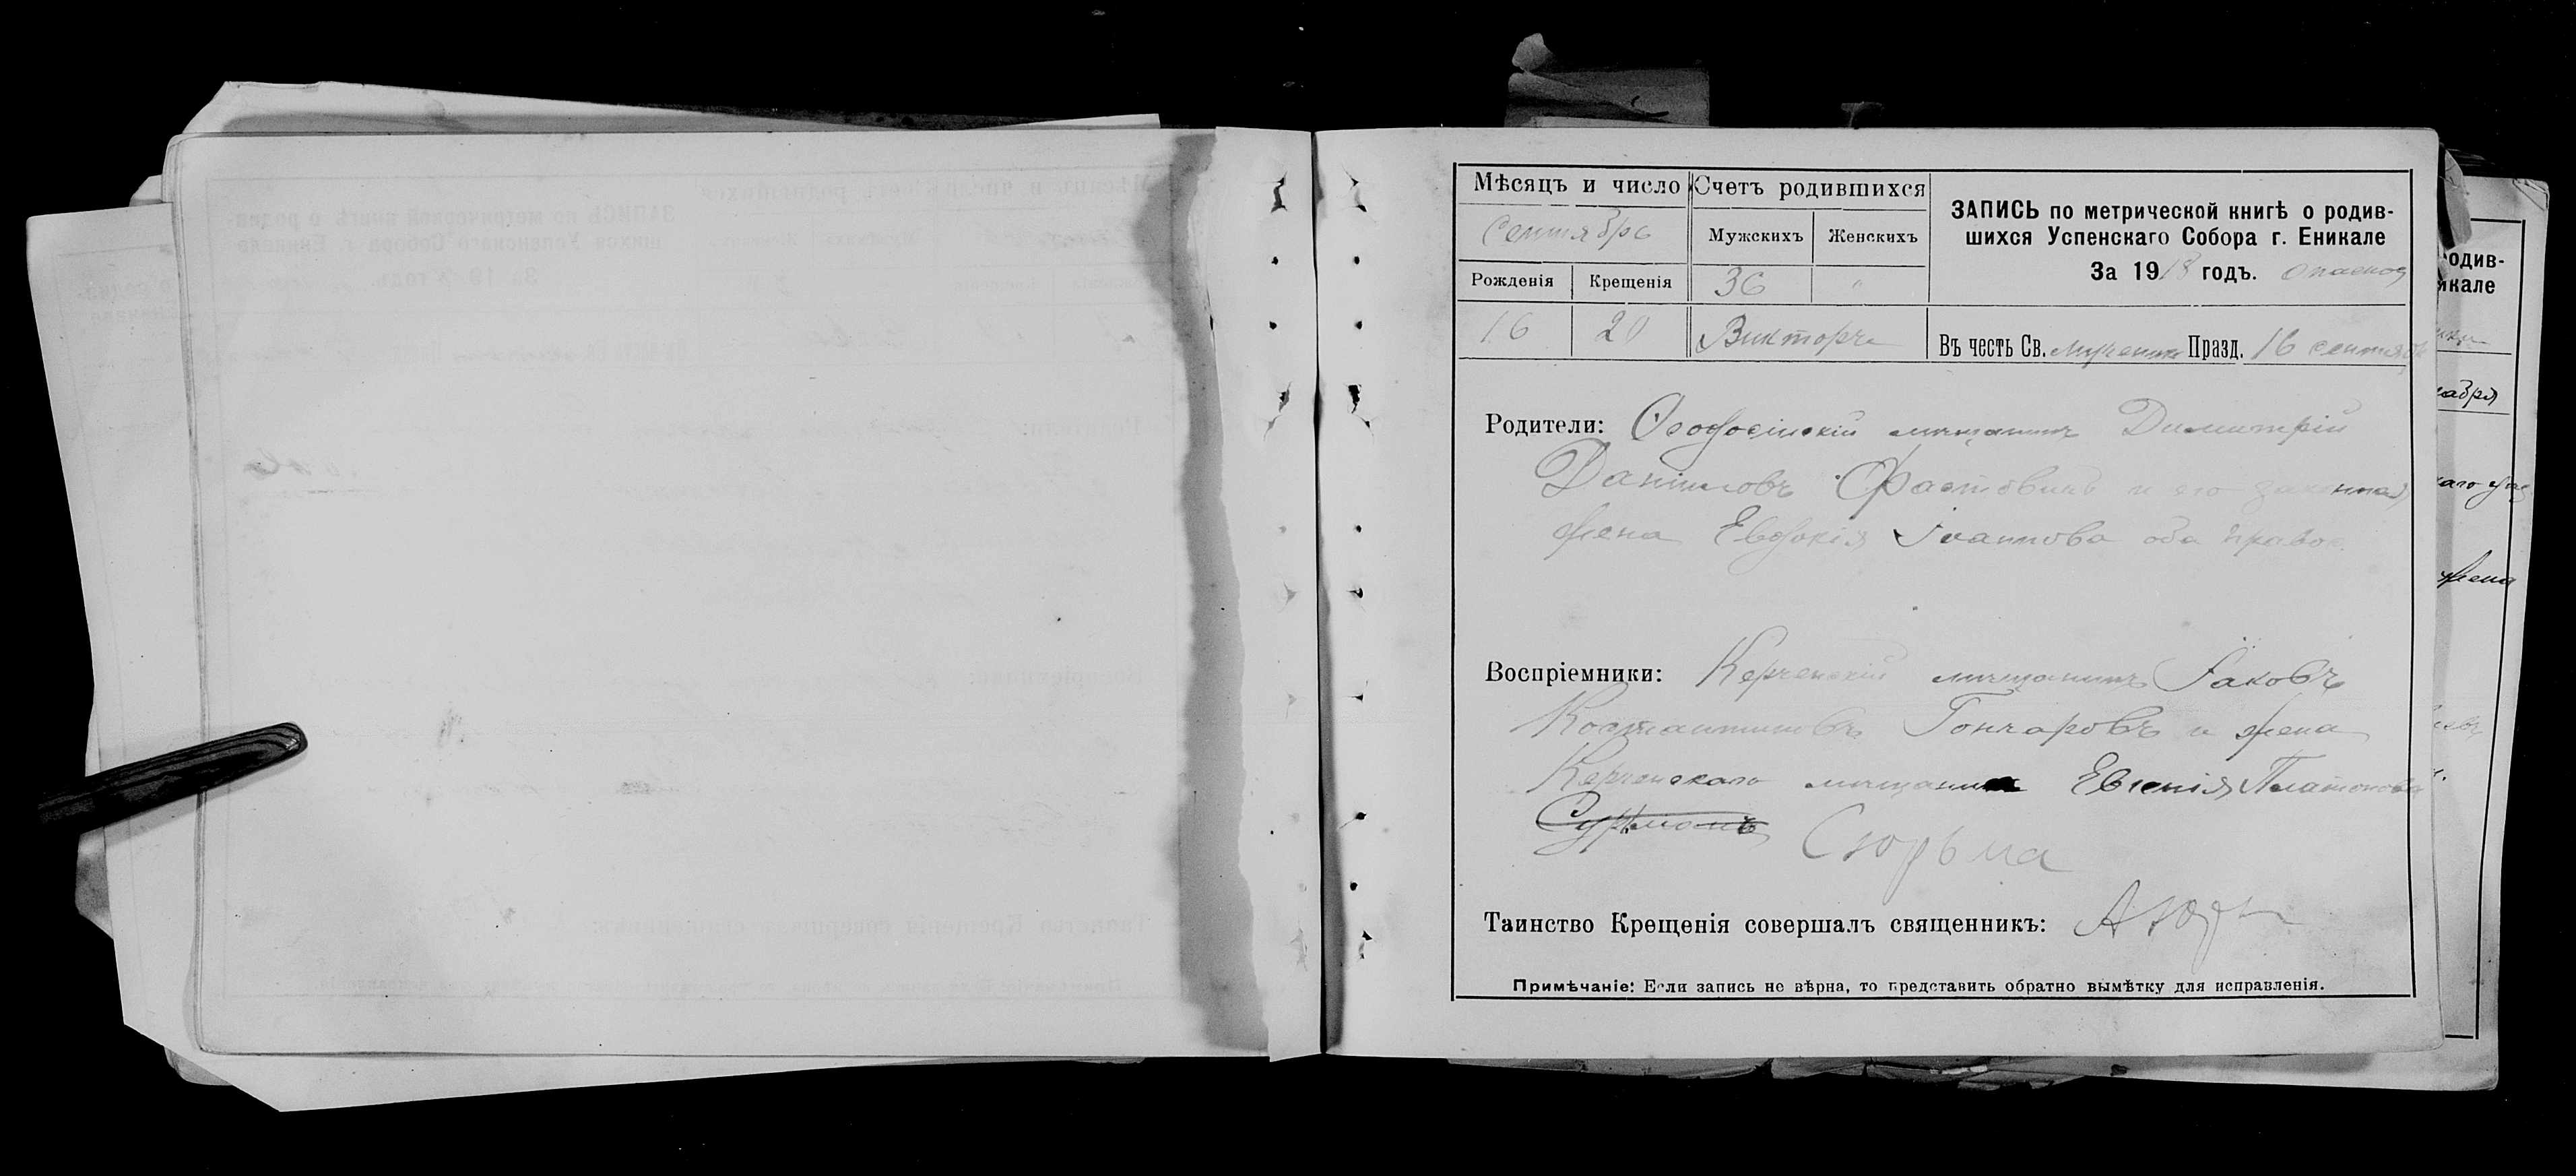 Мѣсяцъ и число
Счетъ родившихся
ЗАПИСЬ по метрической книгѣ о родив-
шихся Успенскаго Собора г. Еникале
За 1918 годъ.
Сентябрь
Мужскихъ
Женскихъ
Рожденія
Крещенія
36
"
16
20
Викторъ
Въ честь Св. мученика Празд. 16 сентября
Родители: Ѳеодосійскій мѣщанинъ Димитрій
Даніиловъ и его законная
жена Евдокія Іоаннова оба правос.
Воспріемники: Керченскій мѣщанинъ Іаковъ
Костантиновъ Гончаровъ и жена
Керченскаго мѣщанина Евгенія Платонова
Сюрьма
Таинство Крещенія совершалъ священникъ:
Примѣчаніе: Если запись не вѣрна, то представить обратно вымѣтку для исправленія.
одив-
икале
абря
каго
жена